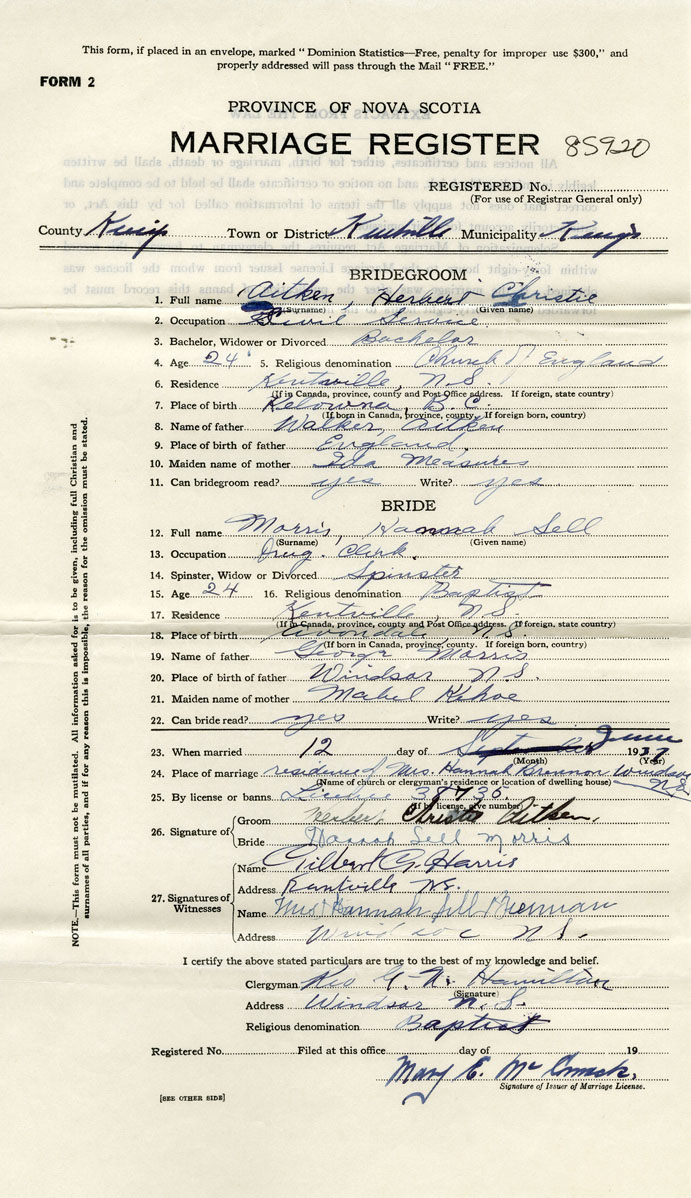 This form, if placed in an envelope, marked "Dominion Statistics—Free, penalty for improper use $300," and
properly addressed will pass through the Mail "FREE."
FORM 2
PROVINCE OF NOVA SCOTIA
MARRIAGE REGISTER 85920
REGISTERED No.
(For use of Registrar General only)
County Kings Town or District Kentville Municipality Kings
BRIDEGROOM
1. Full name Aitken, Herbert Christie
(Surname) (Given name)
2. Occupation Civil Service
3. Bachelor, Widower or Divorced Bachelor
4. Age 24 5. Religious denomination Church of England
6. Residence Kentville, N.S.
(If in Canada, province, county and Post Office address. If foreign, state country)
7. Place of birth Kelowna, B.C.
(If born in Canada, province, county. If foreign born, country)
8. Name of father Walker Aitken
9. Place of birth of father England
10. Maiden name of mother Ida Measures
11. Can bridegroom read? yes Write? yes
BRIDE
12. Full name Morris, Hannah Sell
(Surname) (Given name)
13. Occupation Drug. Clerk.
14. Spinster, Widow or Divorced Spinster
15. Age 24 16. Religious denomination Baptist
17. Residence Kentville, N.S.
(If in Canada, province, county and Post Office address. If foreign, state country)
18. Place of birth Avondale N.S.
(If born in Canada, province, county. If foreign born, country)
19. Name of father George Morris
20. Place of birth of father Windsor N.S.
21. Maiden name of mother Mabel Kehoe
22. Can bride read? yes Write? yes
23. When married 12 day of September June 1937
(Month) (Year)
24. Place of marriage residence of Mrs. Hannah Brennan Windsor N.S.
(Name of church or clergyman's residence or location of dwelling house)
25. By license or banns License 38736
(If by license, give number)
26. Signature of Groom Herbert Christie Aitken.
Bride Hannah Sell Morris
27. Signatures of Witnesses
Name Gilbert G. Harris
Address Kentville N.S.
Name Mrs Hannah Sell Brennan
Address Windsor N.S.
I certify the above stated particulars are true to the best of my knowledge and belief.
Clergyman Rev G. N. Hamilton
(Signature)
Address Windsor N.S.
Religious denomination Baptist
Registered No. Filed at this office day of 19
Mary E. McCormack.
Signature of Issuer of Marriage License.
[SEE OTHER SIDE]
NOTE.—This form must not be mutilated. All information asked for is to be given, including full Christian and
surnames of all parties, and if for any reason this is impossible, the reason for the omission must be stated.